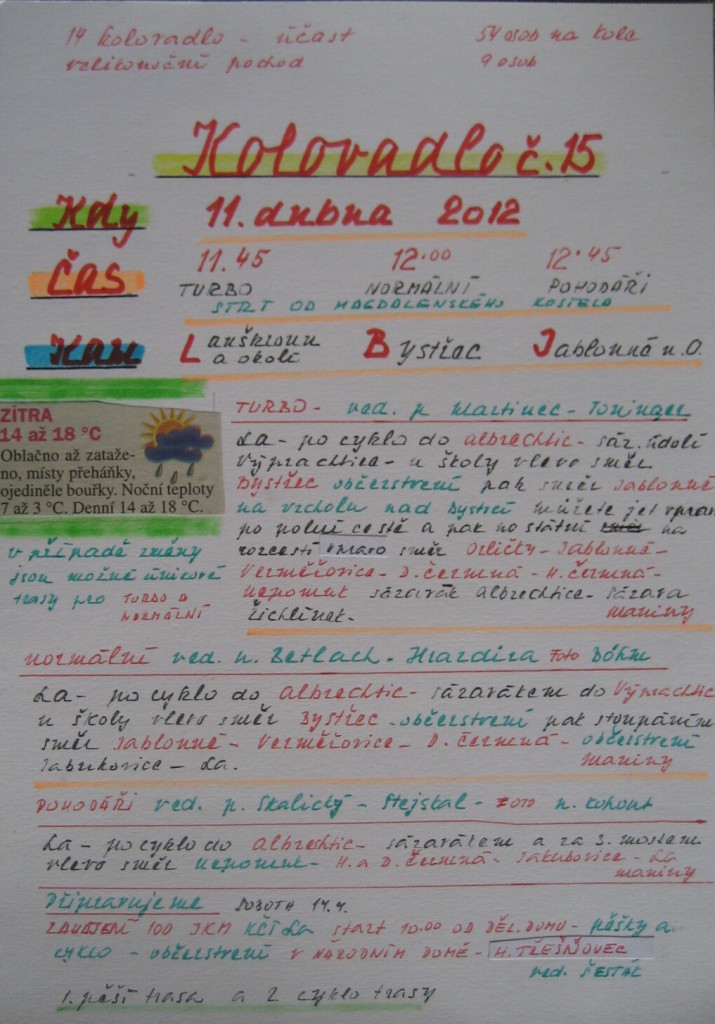 14 kolovadlo - účast 54 osob na kole
velikonoční pochod 9 osob
Kolovadlo č. 15
Kdy 11. dubna 2012
Čas 11.45 12.00 12.45
TURBO NORMÁLNÍ POHODÁŘI
STRT OD MAGDALENSKÉHO KOSTELA
Kam Lanškroun a okolí Bystřec Jablonné n.O.
ZÍTRA
14 až 18 °C
Oblačno až zataže-
no, místy přeháňky,
ojediněle bouřky. Noční teploty
7 až 3 °C. Denní 14 až 18 °C.
v případě změny
jsou možné únikové
trasy pro TURBO a
NORMÁLNÍ
TURBO - ved. p Martinec - Toninger
La - po cyklo do Albrechtic - sáz. údolí
Výprachtice - u školy vlevo směr
Bystřec občerstvení pak směr Jablonné
na vrcholu nad Bystřcí můžete jet vprav
po polní cestě a pak po státní na
rozcestí vpravo směr Orličky - Jablonné -
Verměřovice - D. čermná - H. čermná -
Nepomuk sázavák Albrechtice - Sázava
Žichlínek. Maniny
Normální ved. p. Betlach - Hrazdira Foto Böhm
La - po cyklo do Albrechtic - sázavákem do Výprachtic
u školy vlevo směr Bystřec - občerstvení pak stoupáním
směr Jablonné - Verměřovice - D. čermná - občerstvení
Jakubovice - La. Maniny
POHODÁŘI ved. p. Skalický - Stejskal - FOTO p. Kohout
La - po cyklo do Albrechtic - sázavákem a za 3. mostem
vlevo směr Nepomuk - H. a D. Čermná - Jakubovice - La
maniny
Připravujeme SOBOTA 14.4.
ZAHÁJENÍ 100 JKM KČT La start 10.00 OD DĚL. DOMU - pěšky a
cyklo - občerstvení v NÁRODNÍM DOMĚ - H. TŘEŠŇOVEC
ved. ŠESTÁK
1. pěší trasa a 2 cyklo trasy